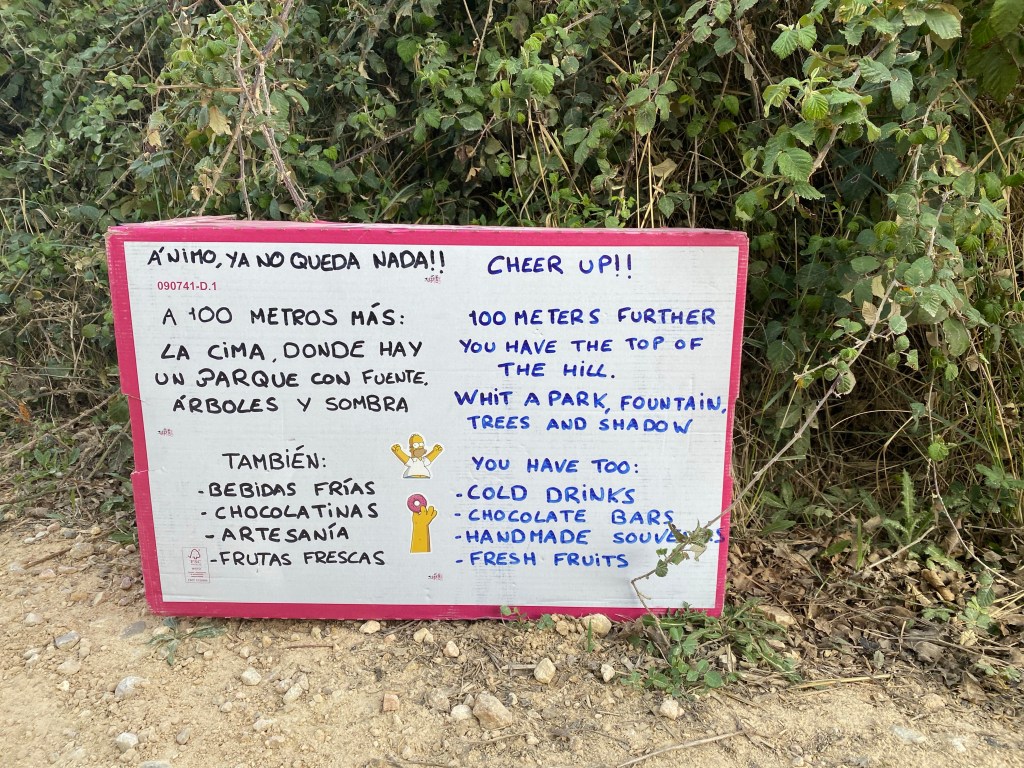 ÁNIMO, YA NO QUEDA NADA!!
090741-D.1
A 100 METROS MÁS:
LA CIMA, DONDE HAY
UN PARQUE CON FUENTE,
ÁRBOLES Y SOMBRA
TAMBIÉN:
- BEBIDAS FRÍAS
- CHOCOLATINAS
- ARTESANÍA
- FRUTAS FRESCAS
FSC
CHEER UP!!
100 METERS FURTHER
YOU HAVE THE TOP OF
THE HILL.
WHIT A PARK, FOUNTAIN,
TREES AND SHADOW
YOU HAVE TOO:
- COLD DRINKS
- CHOCOLATE BARS
- HANDMADE
- FRESH FRUITS